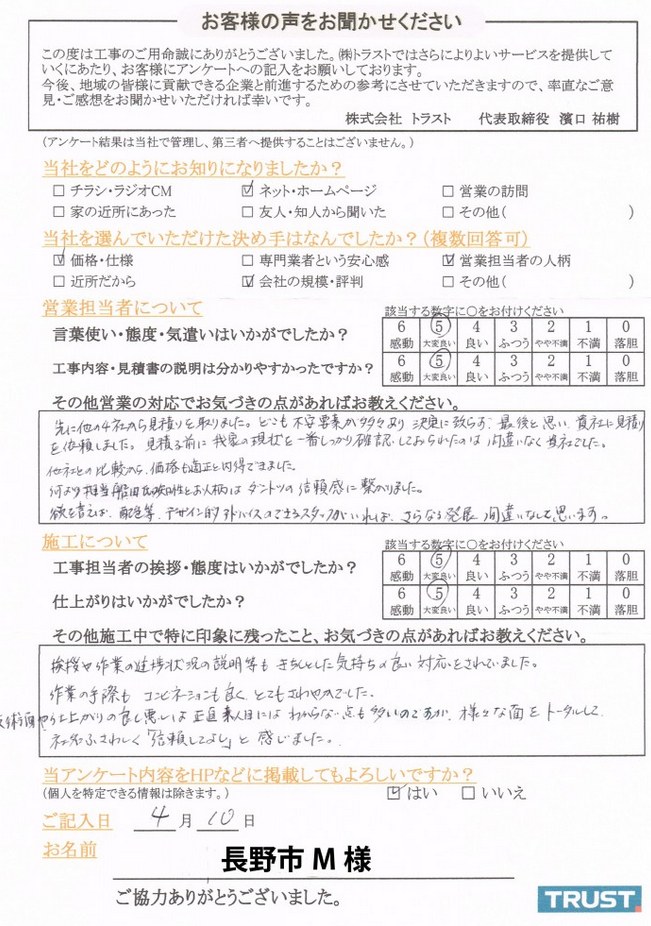 お客様の声をお聞かせください
この度は工事のご用命誠にありがとうございました。㈱トラストではさらによりよいサービスを提供して
いくにあたり、お客様にアンケートへの記入をお願いしております。
今後、地域の皆様に貢献できる企業と前進するための参考にさせていただきますので、率直なご意
見・ご感想をお聞かせいただければ幸いです。
株式会社 トラスト 代表取締役 濱口 祐樹
(アンケート結果は当社で管理し、第三者へ提供することはございません。)
当社をどのようにお知りになりましたか？
□ チラシ・ラジオCM ☑ ネット・ホームページ □ 営業の訪問
□ 家の近所にあった □ 友人・知人から聞いた □ その他( )
当社を選んでいただけた決め手はなんでしたか？(複数回答可)
☑ 価格・仕様 □ 専門業者という安心感 ☑ 営業担当者の人柄
□ 近所だから ☑ 会社の規模・評判 □ その他( )
営業担当者について 該当する数字に○をお付けください
言葉使い・態度・気遣いはいかがでしたか？ 6 5 4 3 2 1 0
感動 大変良い 良い ふつう やや不満 不満 落胆
工事内容・見積書の説明は分かりやすかったですか？ 6 5 4 3 2 1 0
感動 大変良い 良い ふつう やや不満 不満 落胆
その他営業の対応でお気づきの点があればお教えください。
先に他の4社から見積りを取りました。どこも不安要素が多々あり 決定に致らず、最後と思い 貴社に見積り
を依頼しました。見積る前に 我家の現状を一番しっかり確認しておられたのは 間違いなく貴社でした。
他社との比較から、価格も適正と納得できました。
何より担当船田氏の知性とお人柄はダントツの信頼感に繋がりました。
欲を言えば、配色等、デザイン的アドバイスのできるスタッフがいれば、さらなる発展 間違いなしと思います。
施工について 該当する数字に○をお付けください
工事担当者の挨拶・態度はいかがでしたか？ 6 5 4 3 2 1 0
感動 大変良い 良い ふつう やや不満 不満 落胆
仕上がりはいかがでしたか？ 6 5 4 3 2 1 0
感動 大変良い 良い ふつう やや不満 不満 落胆
その他施工中で特に印象に残ったこと、お気づきの点があればお教えください。
挨拶や作業の進捗状況の説明等も きちんとした気持ちの良い対応をされていました。
作業の手際も コンビネーションも良く、とてもさわやかでした。
技術面や仕上がりの良し悪しは正直素人目にはわからない点も多いのですが、様々な面をトータルして
社名にふさわしく「信頼してよし」と 感じました。
当アンケート内容をHPなどに掲載してもよろしいですか？
(個人を特定できる情報は除きます。) ☑ はい □ いいえ
ご記入日 4 月 10 日
お名前 長野市 M 様
ご協力ありがとうございました。
TRUST.